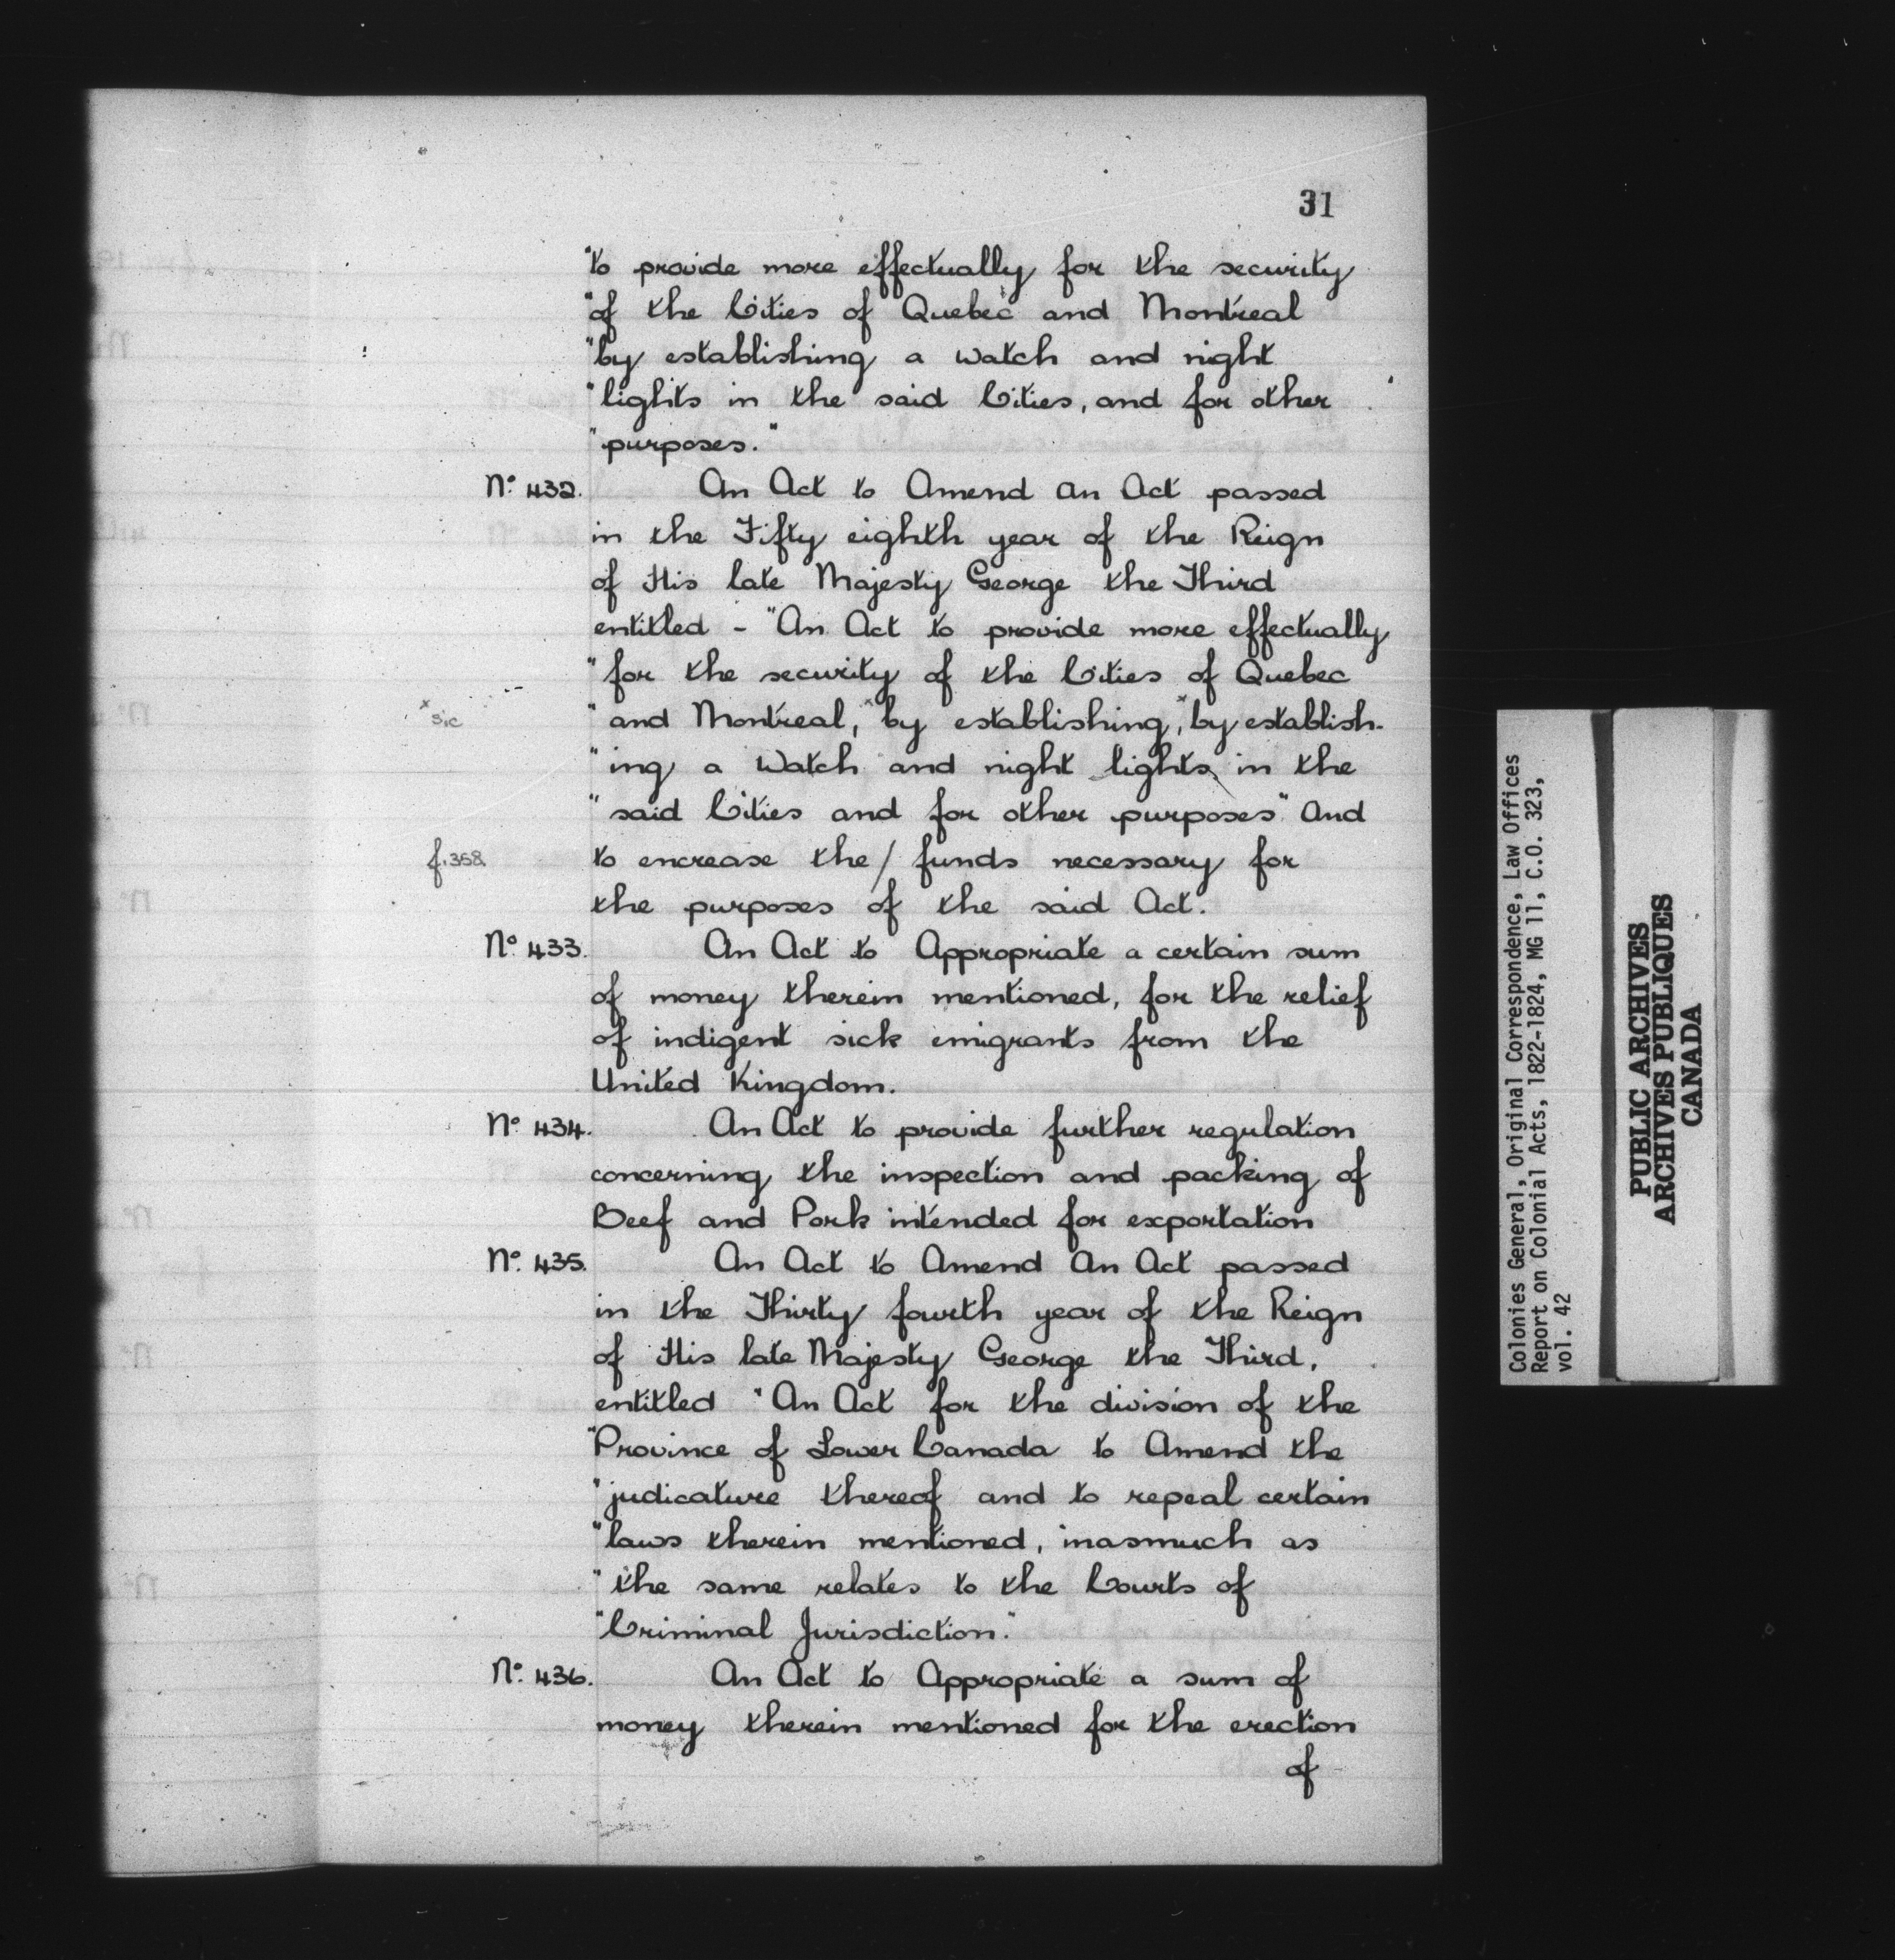 31
"to provide more effectually for the security
"of the Cities of Quebec and Montreal
"by establishing a watch and night
"lights in the said Cities, and for other
"purposes."
No. 432. An Act to Amend an Act passed
in the Fifty eighth year of the Reign
of His late Majesty George the Third
entitled - "An Act to provide more effectually
"for the security of the Cities of Quebec
x sic "and Montreal, x by establishing, x by establish-
"ing a Watch and night lights in the
"said Cities and for other purposes" And
f.358. to encrease the / funds necessary for
the purposes of the said Act.
No. 433. An Act to Appropriate a certain sum
of money therein mentioned, for the relief
of indigent sick emigrants from the
United Kingdom.
No. 434. An Act to provide further regulation
concerning the inspection and packing of
Beef and Pork intended for exportation
No. 435. An Act to Amend An Act passed
in the Thirty fourth year of the Reign
of His late Majesty George the Third,
entitled "An Act for the division of the
"Province of Lower Canada to Amend the
"judicature thereof and to repeal certain
"laws therein mentioned, inasmuch as
"the same relates to the Courts of
"Criminal Jurisdiction."
No. 436. An Act to Appropriate a sum of
money therein mentioned for the erection
of
Colonies General, Original Correspondence, Law Offices
Report on Colonial Acts, 1822-1824, MG 11, C.O. 323,
vol. 42
PUBLIC ARCHIVES
ARCHIVES PUBLIQUES
CANADA